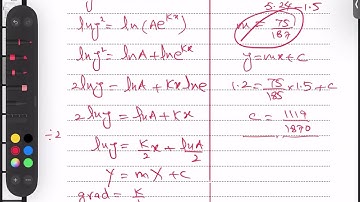 y
ln y² = ln(Ae^Kx)
ln y² = lnA + lne^Kx
2lny = lnA + Kx lne
2lny = lnA + Kx
÷2
lny = K/2 x + lnA/2
Y = mX + c
grad = K
5.24 - 1.5
m = 75/187
y = mx + c
1.2 = 75/185 × 1.5 + c
c = 1119/1870